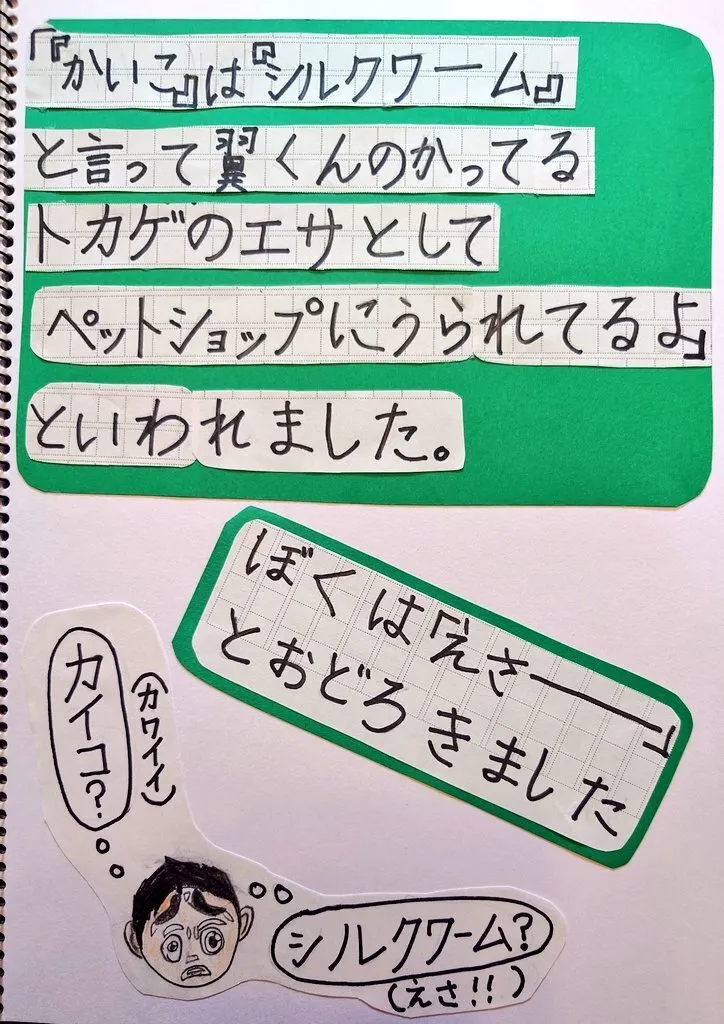 「『かいこ』は『シルクワーム』
と言って翼くんのかってる
トカゲのエサとして
ペットショップにうられてるよ」
といわれました。
ぼくは「えさ━━━」
とおどろきました
カイコ?
(カワイイ)
シルクワーム?
(えさ!!)